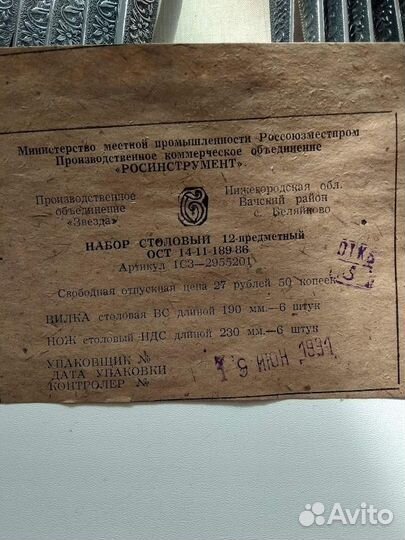 Министерство местной промышленности Россоюзместпром
Производственное коммерческое объединение
«РОСИНСТРУМЕНТ».
Производственное
объединение
«Звезда»
Нижегородская обл.
Вачский район
с. Беляйково
НАБОР СТОЛОВЫЙ 12-предметный
ОСТ 14-11-189-86
Артикул 1СЗ—2955201
Свободная отпускная цена 27 рублей 50 копеек
ВИЛКА столовая ВС длиной 190 мм.—6 штук
НОЖ столовый НДС длиной 230 мм.—6 штук
УПАКОВЩИК №
ДАТА УПАКОВКИ
КОНТРОЛЕР №
ИЮН 1991
ОТК
Avito